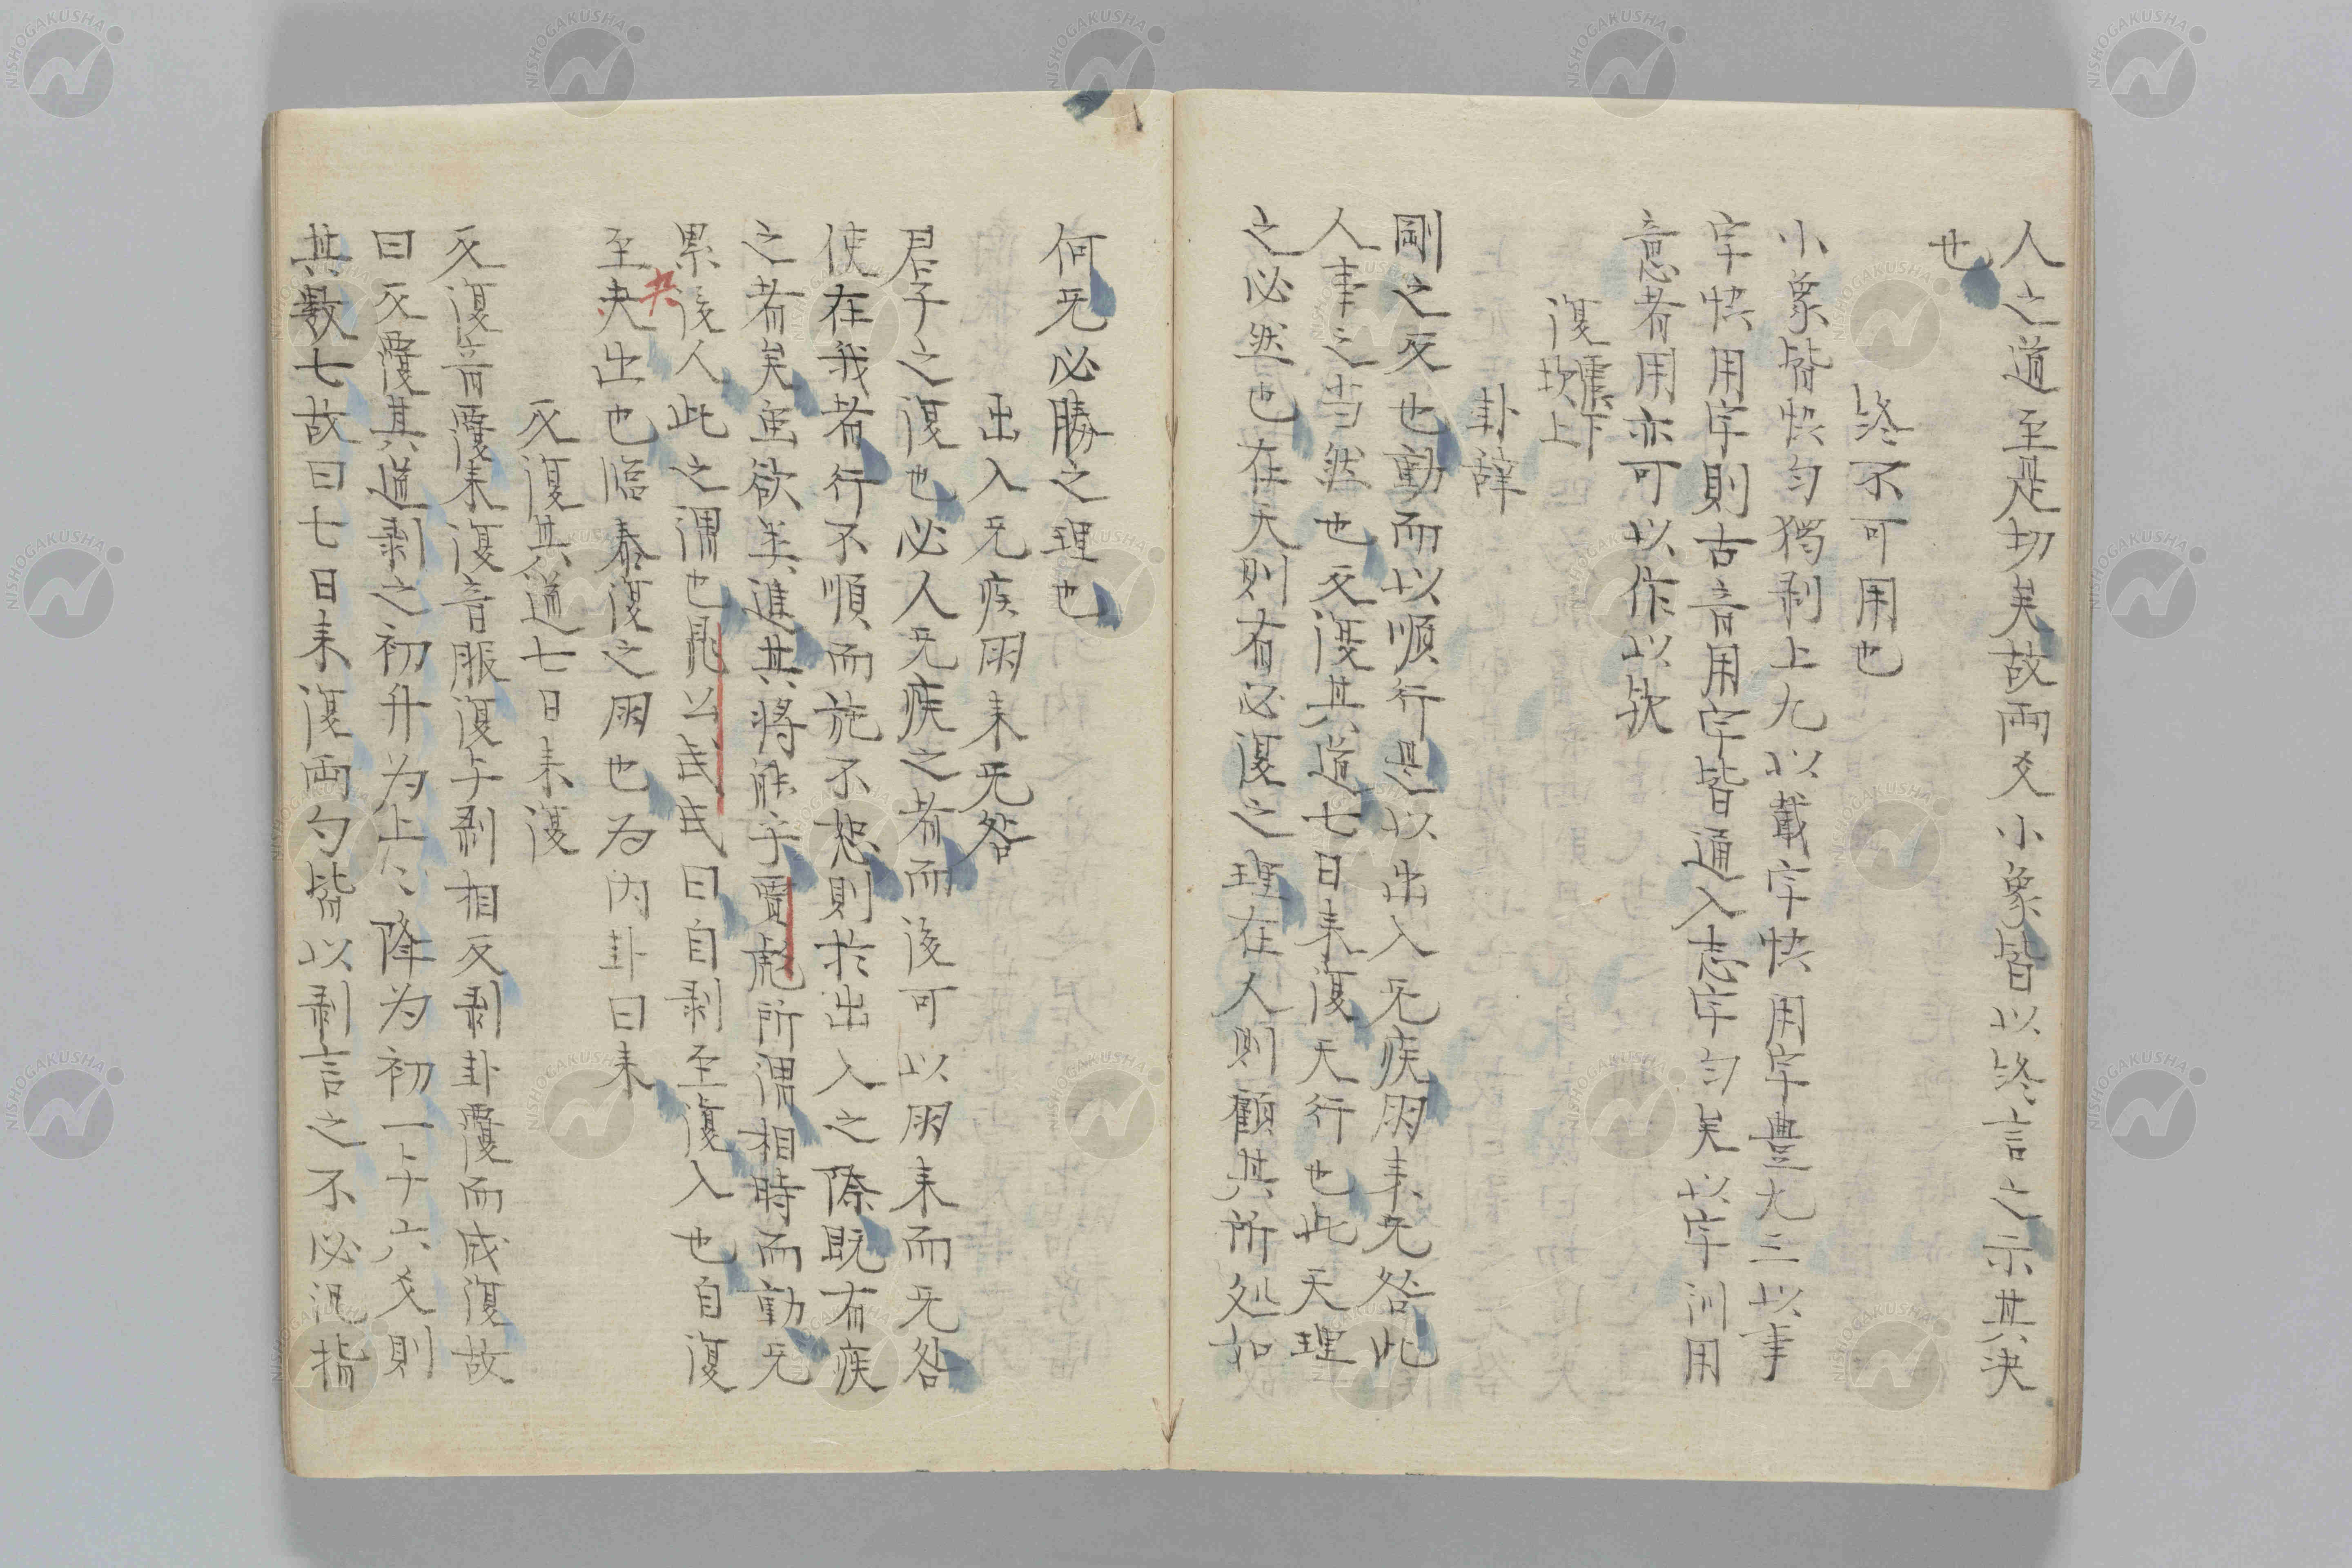 人之道至是切矣故両爻小象皆以終言之示其決
也
終不可用也
小象皆快匀獨剥上九以載字快用字豊九三以事
字快用字則古音用字皆通入志字匀矣以字訓用
意者用亦可以作以欤
復 震下 坎上
卦辞
剛之反也動而以順行是以出入无疾朋来无咎此
人事之当然也反復其道七日来復天行也此天理
之必然也在天則有必復之理在人則顧其所処如
何无必勝之理也
出入无疾朋来无咎
君子之復也必人无疾之者而後可以朋来而无咎
使在我者行不順而施不恕則於出入之際既有疾
之者矣虽欲美進其将能乎竇彪所謂相時而動无
累後人此之謂也晁公武氏曰自剥至復入也自復
至夬出也臨泰復之朋也為内卦曰来
反復其道七日来復
反復音覆来復音服復与剥相反剥卦覆而成復故
曰反覆其道剥之初升为上〻降为初一上一下六爻則
其数七故曰七日来復両勹皆以剥言之不必泥指
夬
NISHOGAKUSHA